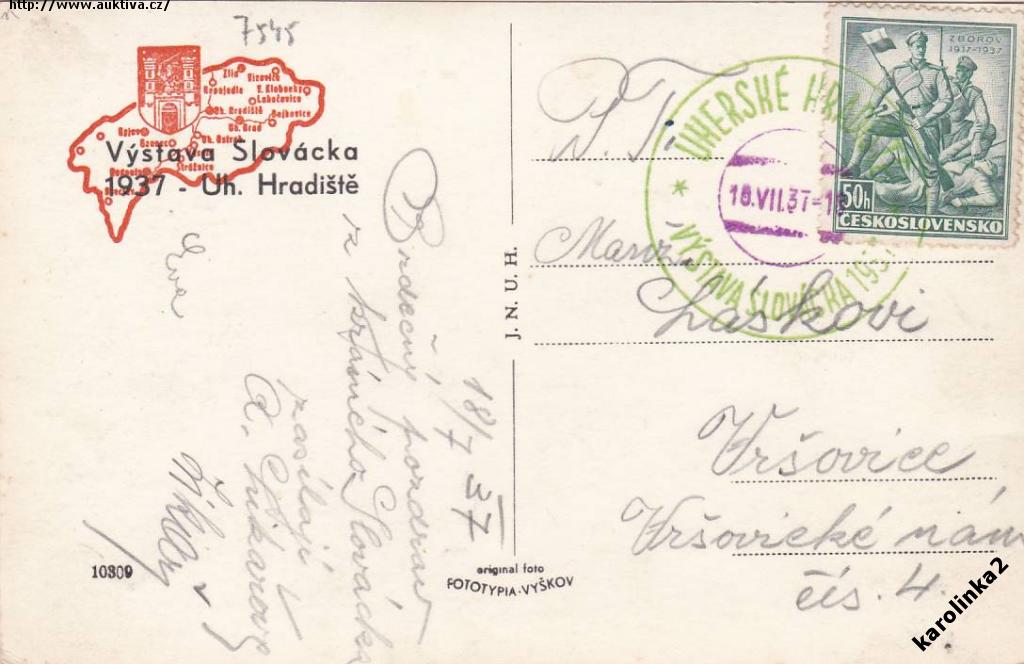 http://www.auktiva.cz/
7545
Zlín
Vizovice
Uh. Hradiště
Uh. Brod
Kyjov
Bzenec
Uh. Ostroh
Strážnice
Výstava Slovácka
1937 - Uh. Hradiště
18/7 37
Srdečný pozdrav
z krásného Slovácka
zasílají
Eva
10309
J. N. U. H.
original foto
FOTOTYPIA-VYŠKOV
P. T.
Manž.
Láskovi
Vršovice
Vršovické nám
čís. 4.
UHERSKÉ HRA
VÝSTAVA SLOVÁCKA 1937
18.VII.37-1
ZBOROV
1917-1937
50h
ČESKOSLOVENSKO
karolinka2